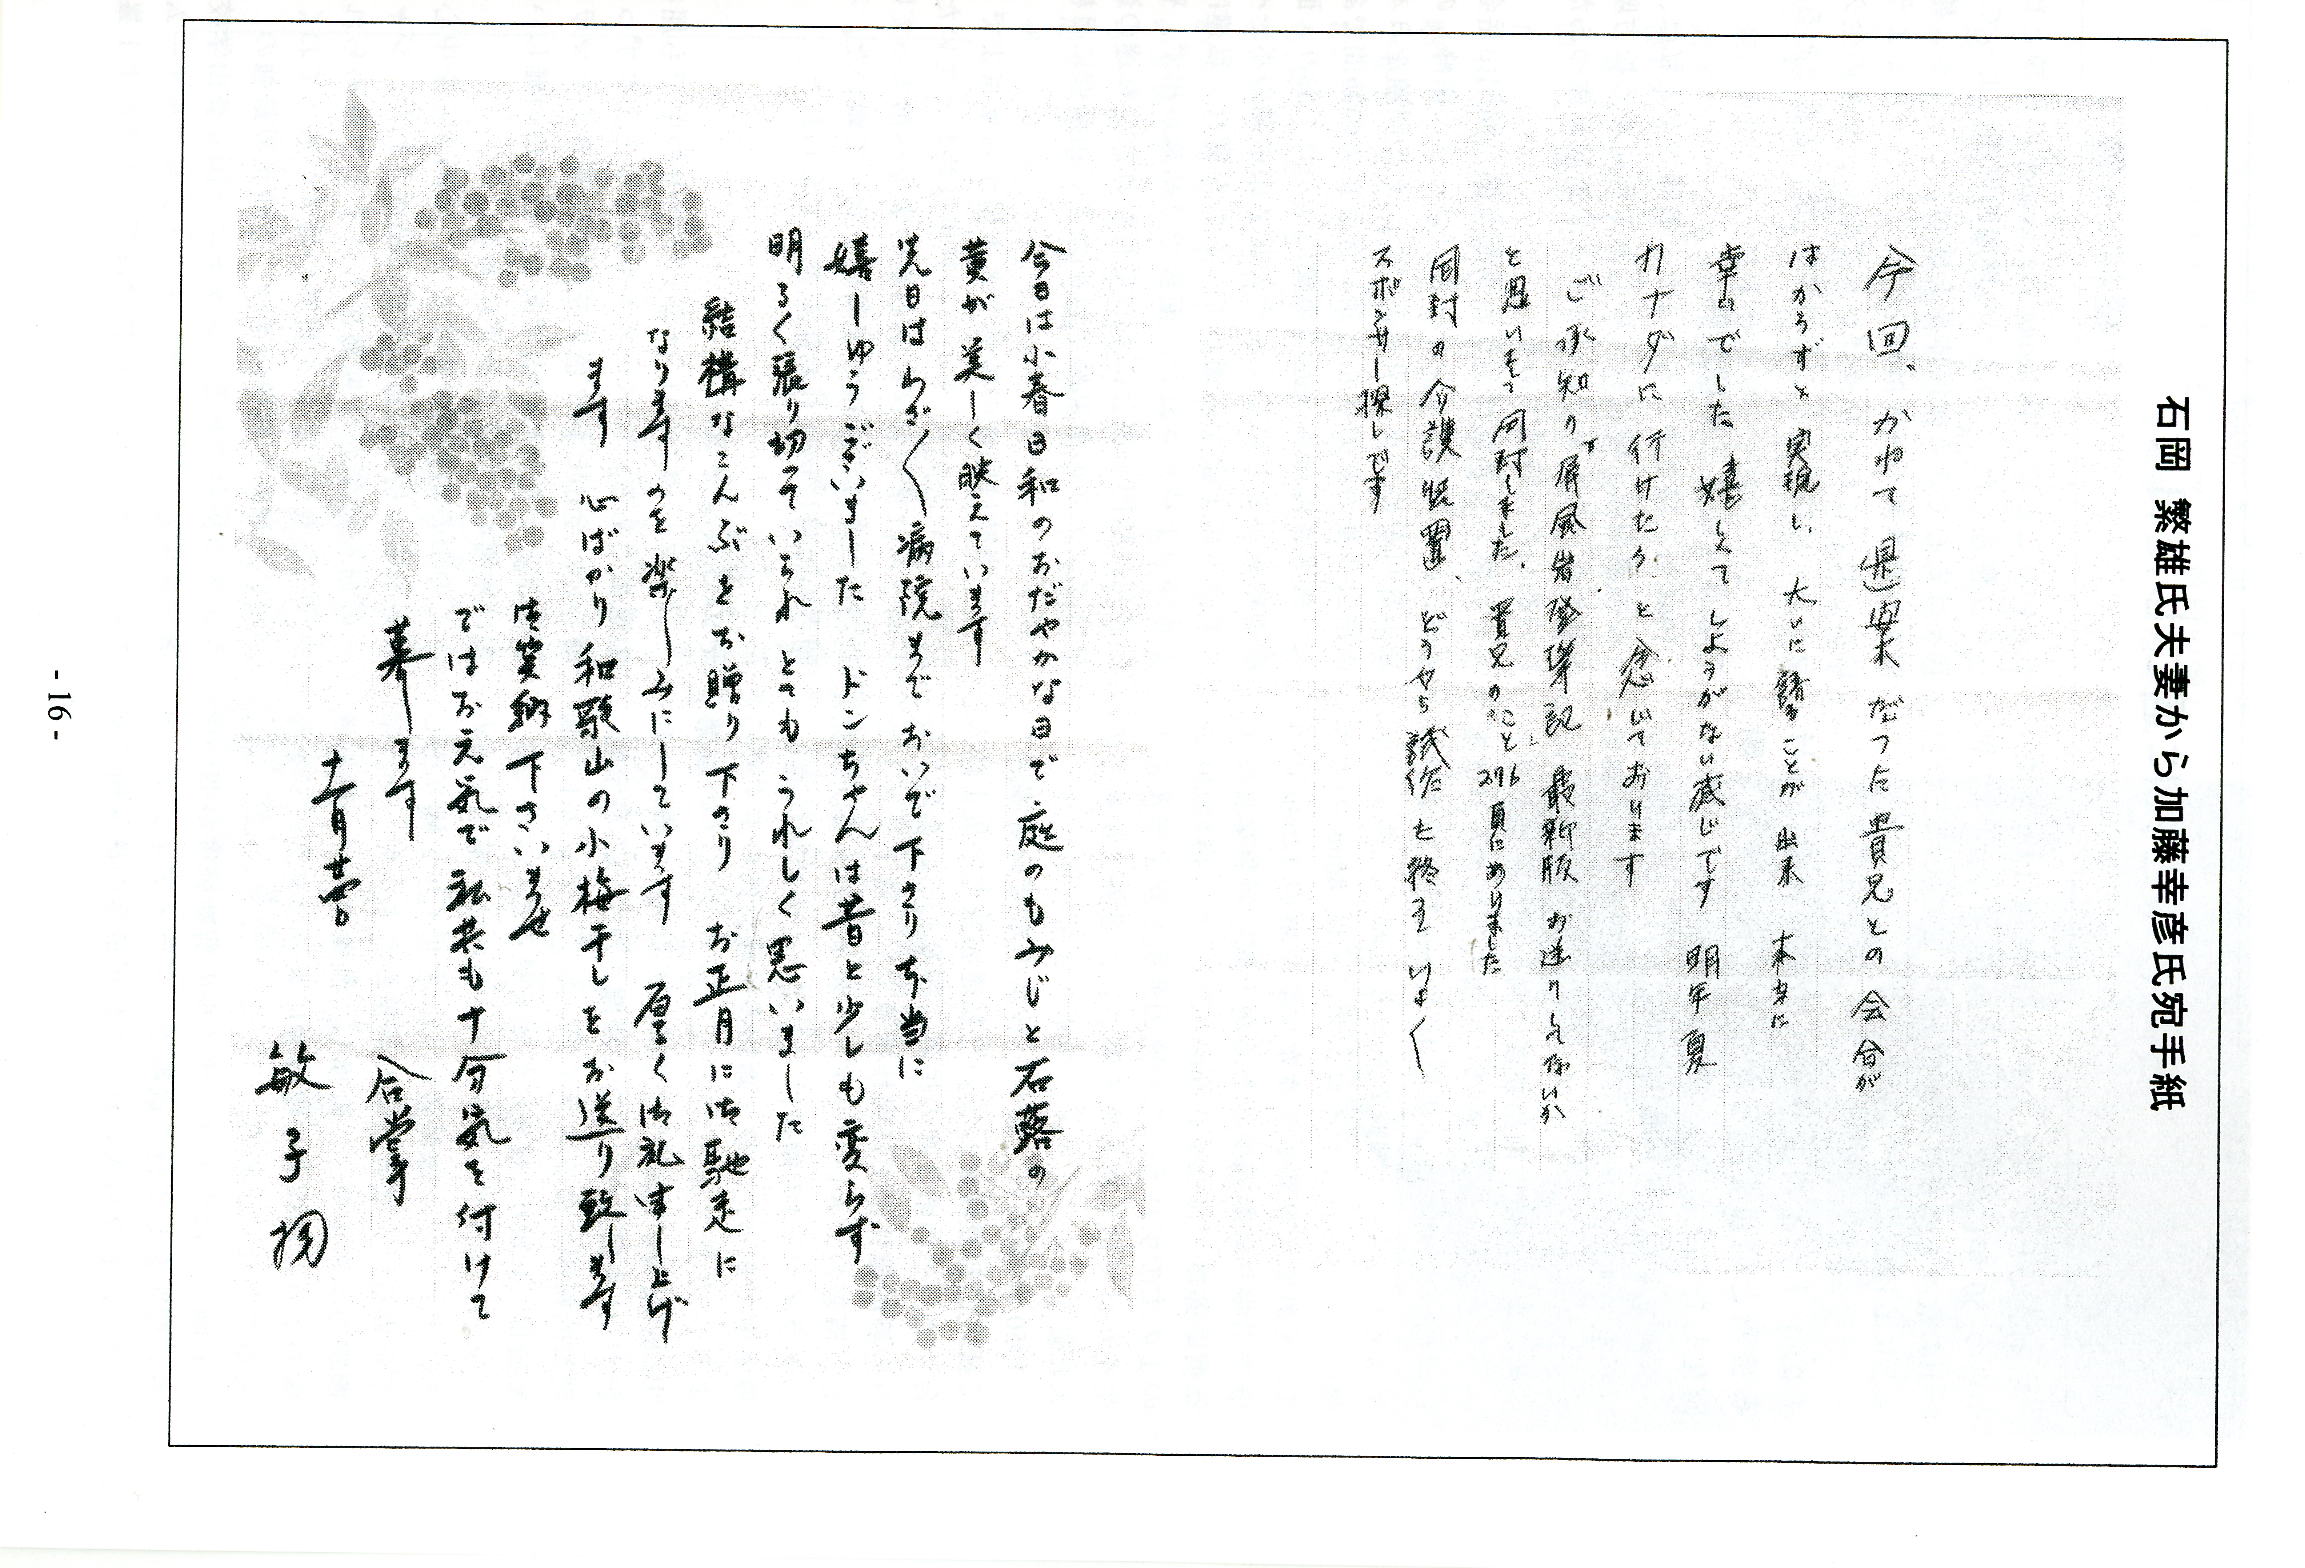 石岡 繁雄氏夫妻から加藤幸彦氏宛手紙
今回、かねて懸案だった貴兄との会合が
はからずも実現し、大いに語ることが出来 本当に
幸せでした 嬉しくてしようがない感じです 明年夏
カナダに行けたら と念じております
ご承知の 屏風岩登攀記 最新版 お送りしてないか
と思いまして同封しました、貴兄のこと276頁にありました
同封の介護装置、どうやら試作も終え いよ〱
スポンサー探しです
今日は小春日和のおだやかな日で庭のもみじと石蕗の
黄が美しく映えています
先日はわざ〱病院までおいで下さり本当に
嬉しゅうございました ドンちゃんは昔と少しも変らず
明るく張り切っていられとてもうれしく思いました
結構なこんぶをお贈り下さり お正月に御馳走に
なりますのを楽しみにしています 厚く御礼申し上げ
ます 心ばかり和歌山の小梅干しをお送り致します
御笑納下さいませ
ではお元気で私共も十分気を付けて
暮します
合掌
敏子拝
- 16 -